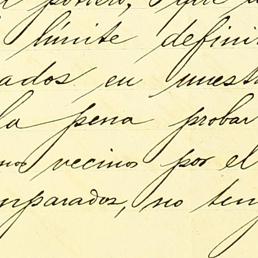 límite defini
ados en nuestr
la pena probar
nos vecinos por el
mparados, no ten